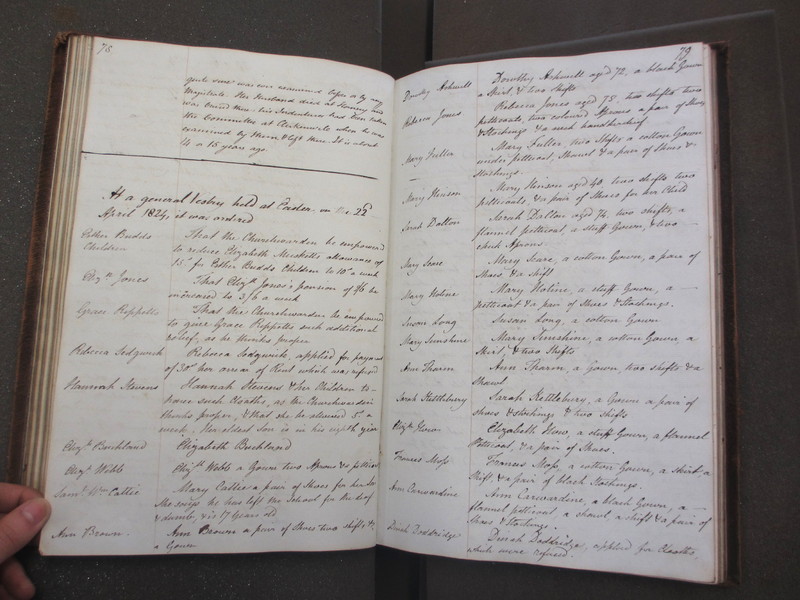 78
quite sure was ever examined before by any
Magistrate. Her Husband died at
was buried there; his Indentures had been taken
the Committee at Clerkenwell when he was
examined by them & left there. It is about
14 or 15 years ago
At a general Vestry held at Easter, on 22d
April 1824, it was ordered
Esther Budds Children That the Churchwarden be empowered
to reduce Elizabeth allowance of
15/ for Esther Budds Children to 10/ a week
Elizth Jones That Elizth Jones's pension of be
increased to 3/6 a week
Grace Reppetts That the Churchwarden be empowered
to give Grace Reppetts such additional
relief, as he thinks proper
Rebecca Sedgwick Rebecca Sedgwick, applied for payment
of 30/ her arrear of Rent which was refused
Hannah Stevens Hannah Stevens & her Children to
have such Cloaths, as the Churchwarden
thinks proper, & that she be allowed 5/ a
week, Her eldest Son is in his eighth year
Elizth Buckland Elizabeth Buckland
Elizth Webb Elizth Webb a Gown two Aprons & a petticoat
Saml Wm Callie Mary Callie a pair of Shoes for her Son
She says he has left the School for the deaf
& dumb, & is 17 Years old
Ann Brown Ann Brown a pair of Shoes two shifts &
a Gown
79
Dorothy Ashwell Dorothy Ashwell aged 72, a black Gown
a Skirt, & two Shifts
Rebecca Jones Rebecca Jones aged 75, two shifts two
petticoats, two coloured Aprons a pair of Shoes
& Stockings & a neck handkerchief
Mary Fuller Mary Fuller, two Shifts a cotton Gown
under petticoat, Shawl & a pair of Shoes &
Stockings.
Mary Henson Mary Henson aged 40, two shifts two
petticoats, & a pair of Shoes for her Child
Sarah Dalton Sarah Dalton aged 74, two shifts, a
flannel petticoat, a stuff Gown, & two
check Aprons
Mary Scare Mary Scare, a cotton Gown, a pair of
Shoes & a shift
Mary Holine Mary Holine, a stuff Gown, a
petticoat & a pair of Shoes & Stockings.
Susan Long Susan Long, a cotton Gown
Mary Sunshine Mary Sunshine, a cotton Gown, a
Skirt, & two Shifts
Ann Tharm Ann Tharm, a Gown two shifts & a
Shawl
Sarah Kettlebery Sarah Kettlebery, a Gown a pair of
shoes & stockings & two shifts
Elizth How Elizabeth How, a stuff Gown, a flannel
Petticoat, & a pair of Shoes.
Frances Moss Frances Moss, a cotton Gown, a skirt a
Shift, & a pair of black Stockings.
Ann Carwardine Ann Carwardine, a black Gown, a
flannel petticoat a shawl a shift & a pair of
Shoes & Stockings.
Dinah Doddridge Dinah Doddridge, applied for Cloaths,
which were refused.